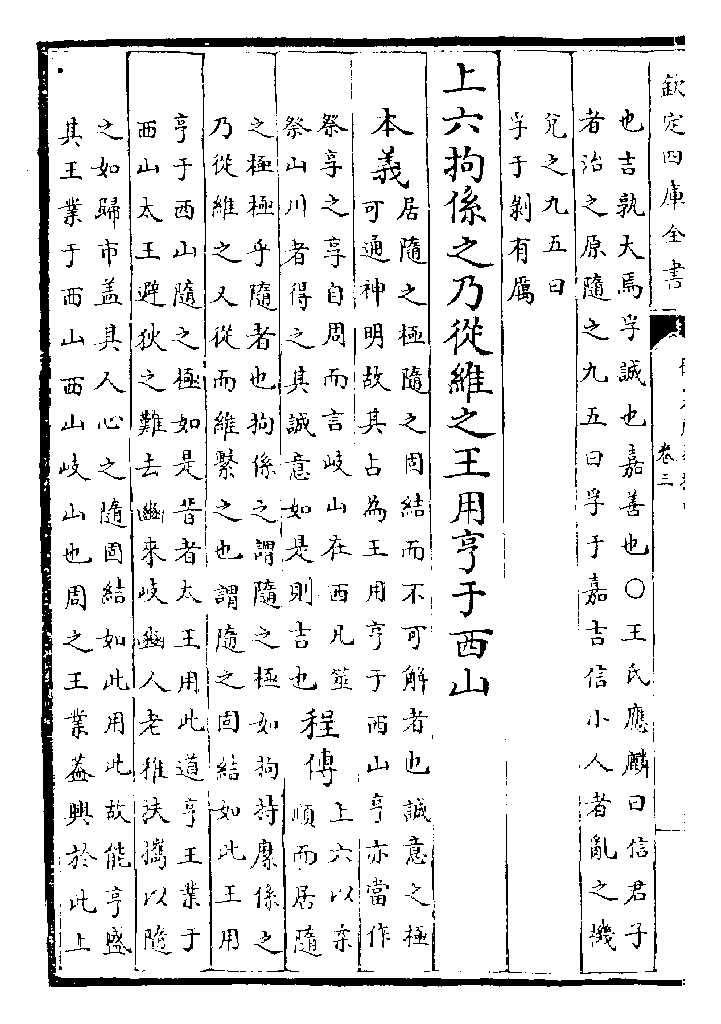 欽定四庫全書
卷三
也吉孰大焉孚誠也嘉善也○王氏應麟曰信君子
者治之原隨之九五曰孚于嘉吉信小人者亂之機
兌之九五曰
孚于剝有厲
上六拘係之乃從維之王用亨于西山
本義
居隨之極隨之固結而不可解者也誠意之極
可通神明故其占為王用亨于西山亨亦當作
祭享之享自周而言岐山在西凡筮
祭山川者得之其誠意如是則吉也
程傳
上六以柔
順而居隨
之極極乎隨者也拘係之謂隨之極如拘持縻係之
乃從維之又從而維繫之也謂隨之固結如此王用
亨于西山隨之極如是昔者太王用此道亨王業于
西山太王避狄之難去豳來岐豳人老稚扶攜以隨
之如歸市盖其人心之隨固結如此用此故能亨盛
其王業于西山西山岐山也周之王業葢興於此上